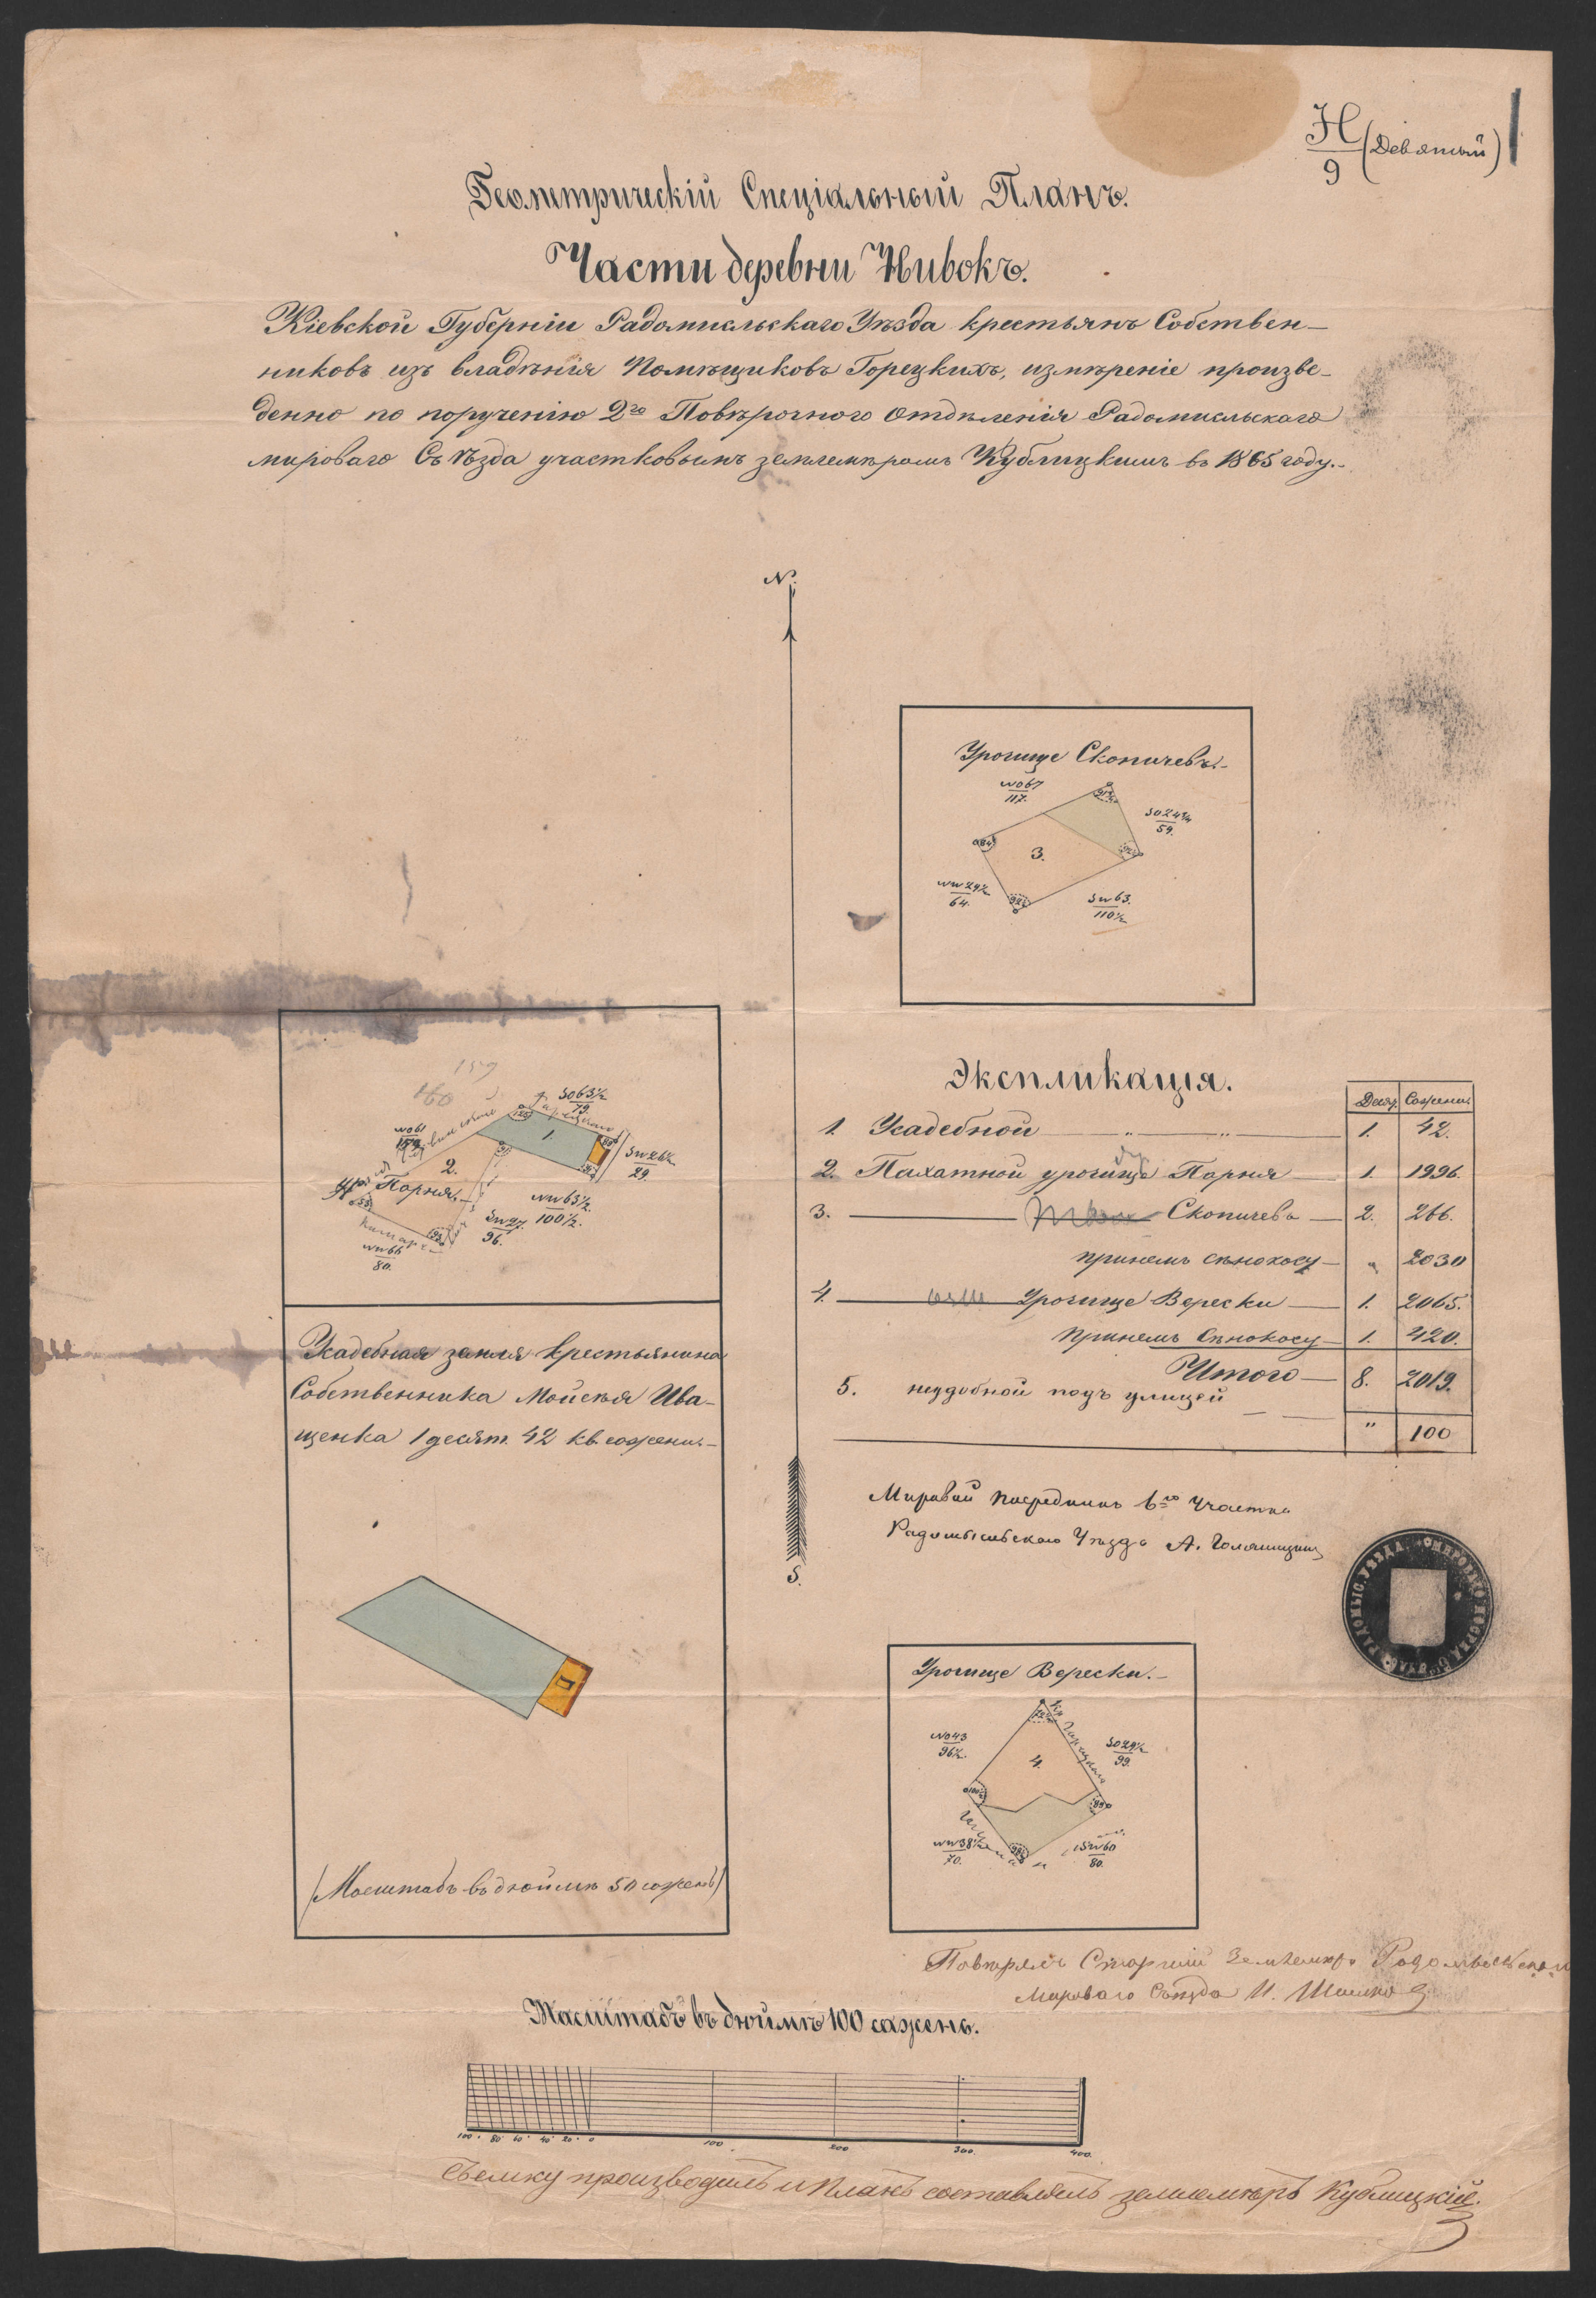 Н
9 (Девятый)
Геометрическій Спеціальный Планъ.
Части деревни Нивокъ.
Кіевской Губерніи Радомысльскаго Уѣзда крестьянъ Собствен-
никовъ изъ владѣнія Помѣщиковъ Горецкихъ, измѣреніе произве-
денно по порученію 2го Повѣрочного Отдѣленія Радомысльскаго
мироваго Съѣзда участковымъ землемѣромъ Кублицкимъ въ 1865 году.-
N.
Урочище Скопичевъ.-
NO67
117.
SO24¾
59.
3.
NW29½
64.
SW63.
110½
159
160
SO63½
79.
NO61
1.
SW26½
29.
2.
Порня.
NW63½.
100½.
SW27.
96.
NW66
80.
Экспликація.
Деся. Сажени
1. Усадебной 1. 42.
2. Пахатной урочище Порня 1. 1996.
3. Скопичева 2. 266.
принемъ сѣнокосу " 2030
4. Урочище Верески 1. 2065.
принемъ Сѣнокосу 1. 420.
Итого 8. 2019.
5. неудобной подъ улицей
" 100
Усадебная земля крестьянина
Собственника Мойсѣя Ива-
щенка 1 десят. 42 кв. сажени-
Мировой Посредникъ 6го Участка
Радомысльскаго Уѣзда А.
S.
Урочище Верески.-
NO43
96½.
SO29½
99.
4.
NW38½
70.
SW60
80.
(Масштабъ въ дюймѣ 50 саженъ)
Повѣрялъ Старшій Землемѣръ Радомысльскаго
Мироваго Съѣзда И.
Масштабъ въ дюймѣ 100 сажень.
100 80 60 40 20 0 100 200 300. 400.
Съемку производилъ и Планъ составлялъ землемѣръ Кублицкій.